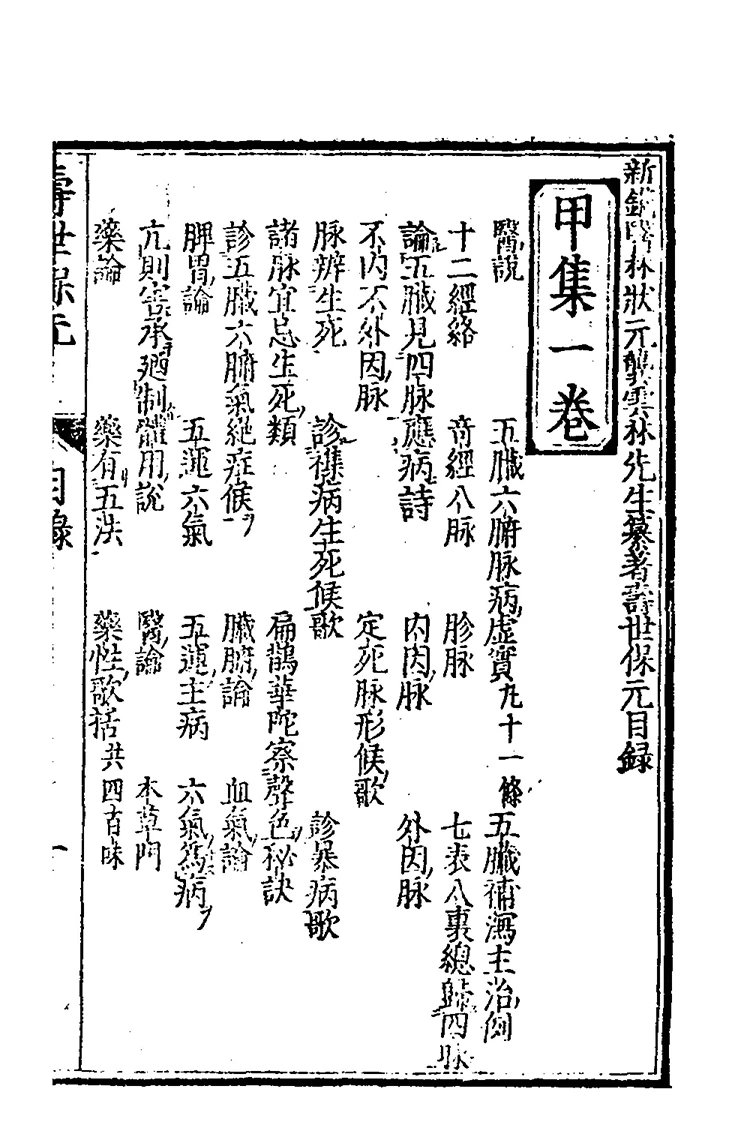 新鋟醫林狀元龔雲林先生纂著壽世保元目録
甲集一卷
醫說 五臟六腑脉病虛實九十一條 五臟補瀉主治例
十二經絡 奇經八脉 胗脉 七表八裏總歸四脉
論五臟見四脉應病詩 内因脉 外因脉
不内不外因脉 定死脉形候歌
脉辨生死 診襍病生死候歌 診暴病歌
諸脉宜忌生死類 扁鵲華陀察聲色秘訣
診五臟六腑氣絶症候 臟腑論 血氣論
脾胃論 五運六氣 五運主病 六氣爲病
亢則害承廼制體用說 醫論 本草門
藥論 藥有五法 藥性歌括共四百味
壽世保元 目錄 一